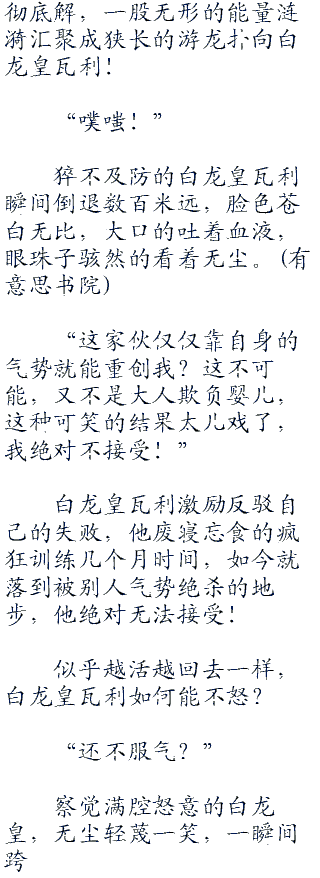 彻底解，一股无形的能量涟
漪汇聚成狭长的游龙扑向白
龙皇瓦利！
“噗嗤！”
猝不及防的白龙皇瓦利
瞬间倒退数百米远，脸色苍
白无比，大口的吐着血液，
眼珠子骇然的看着无尘。(有
意思书院)
“这家伙仅仅靠自身的
气势就能重创我？这不可
能，又不是大人欺负婴儿，
这种可笑的结果太儿戏了，
我绝对不接受！”
白龙皇瓦利激励反驳自
己的失败，他废寝忘食的疯
狂训练几个月时间，如今就
落到被别人气势绝杀的地
步，他绝对无法接受！
似乎越活越回去一样，
白龙皇瓦利如何能不怒？
“还不服气？”
察觉满腔怒意的白龙
皇，无尘轻蔑一笑，一瞬间
跨